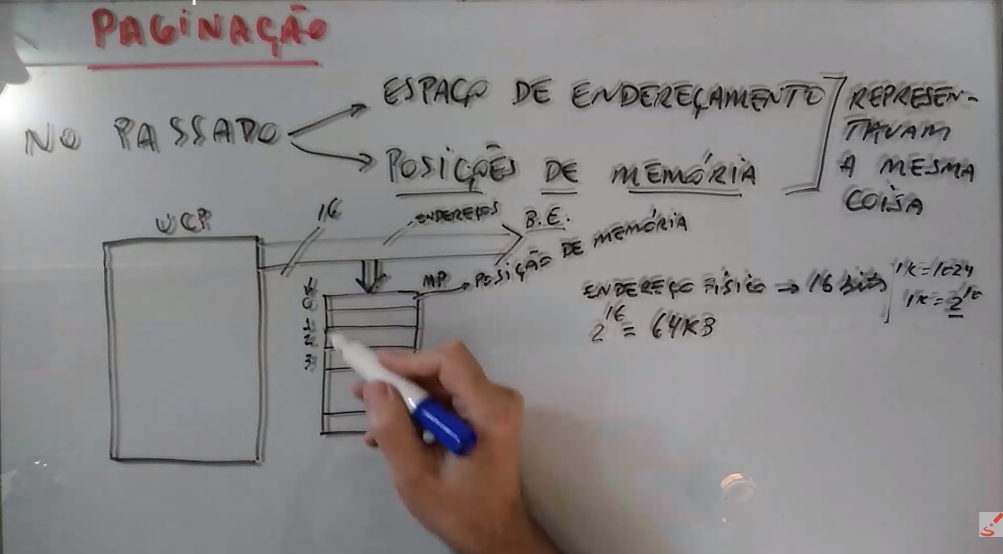 PAGINAÇÃO
NO PASSADO
ESPAÇO DE ENDEREÇAMENTO
POSIÇÕES DE MEMÓRIA
REPRESEN-
TAVAM
A MESMA
COISA
UCP
16
ENDEREÇOS
B.E.
MP
POSIÇÃO DE MEMÓRIA
0
1
2
3
ENDEREÇO FÍSICO → 16 bits
2^16 = 64KB
1K=1024
1K=2^10